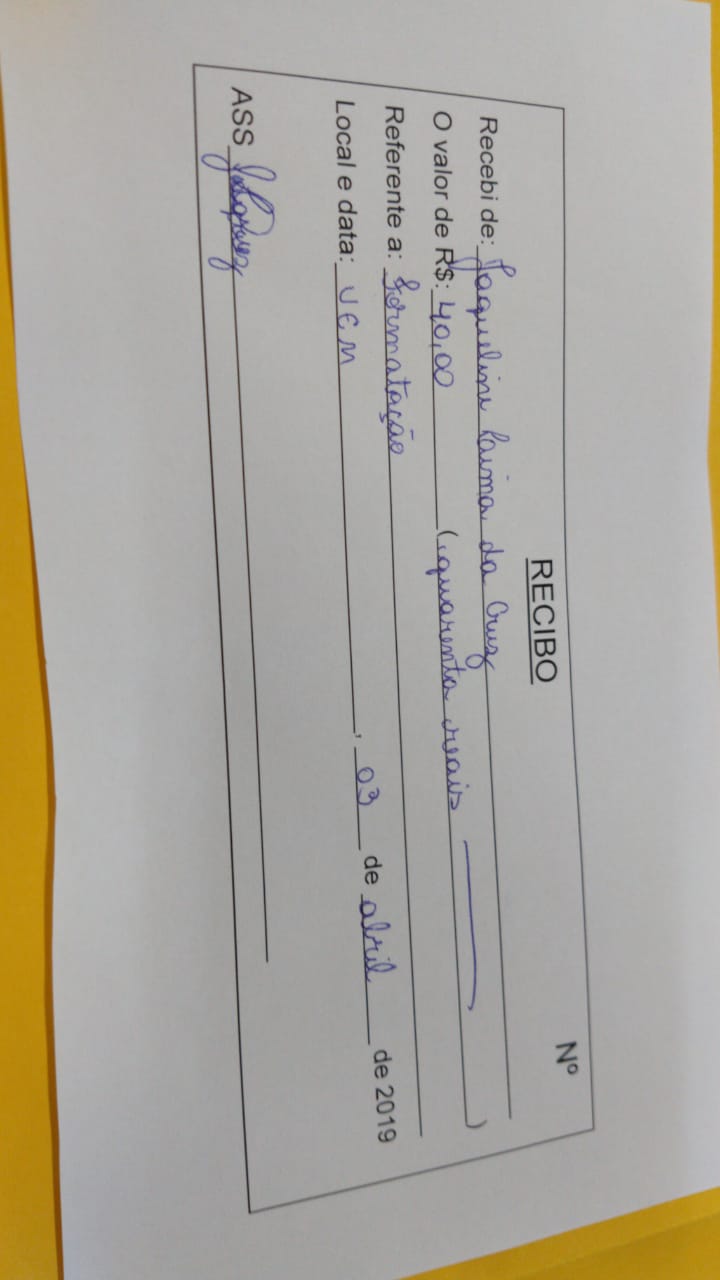 RECIBO Nº
Recebi de: Jaqueline Lima da Cruz
O valor de R$: 40,00 (quarenta reais)
Referente a: formatação
Local e data: UEM, 03 de abril de 2019
ASS